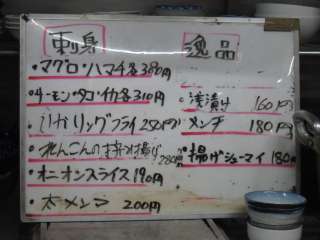 刺身
・マグロ・ハマチ各380円
・サーモン・タコ・イカ各310円
・いかリングフライ250円
・れんこんのはさみ揚げ280円
・オニオンスライス190円
・太メンマ200円
逸品
・浅漬け160円
・メンチ180円
・揚げシューマイ180円